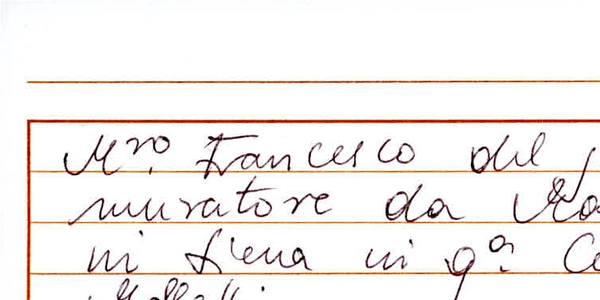 M.ro Francesco del
muratore da
in Siena in q.a